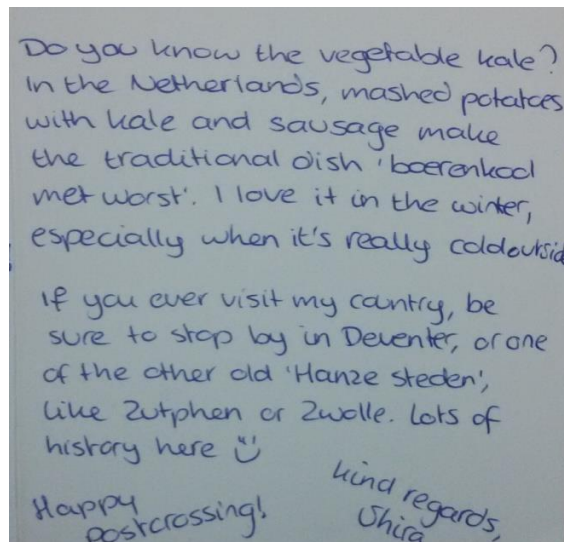 Do you know the vegetable kale?
In the Netherlands, mashed potatoes
with kale and sausage make
the traditional dish 'boerenkool
met worst'. I love it in the winter,
especially when it's really cold outsid
If you ever visit my country, be
sure to stop by in Deventer, or one
of the other old 'Hanze steden',
like Zutphen or Zwolle. Lots of
history here
Happy
postcrossing!
kind regards,
Shira